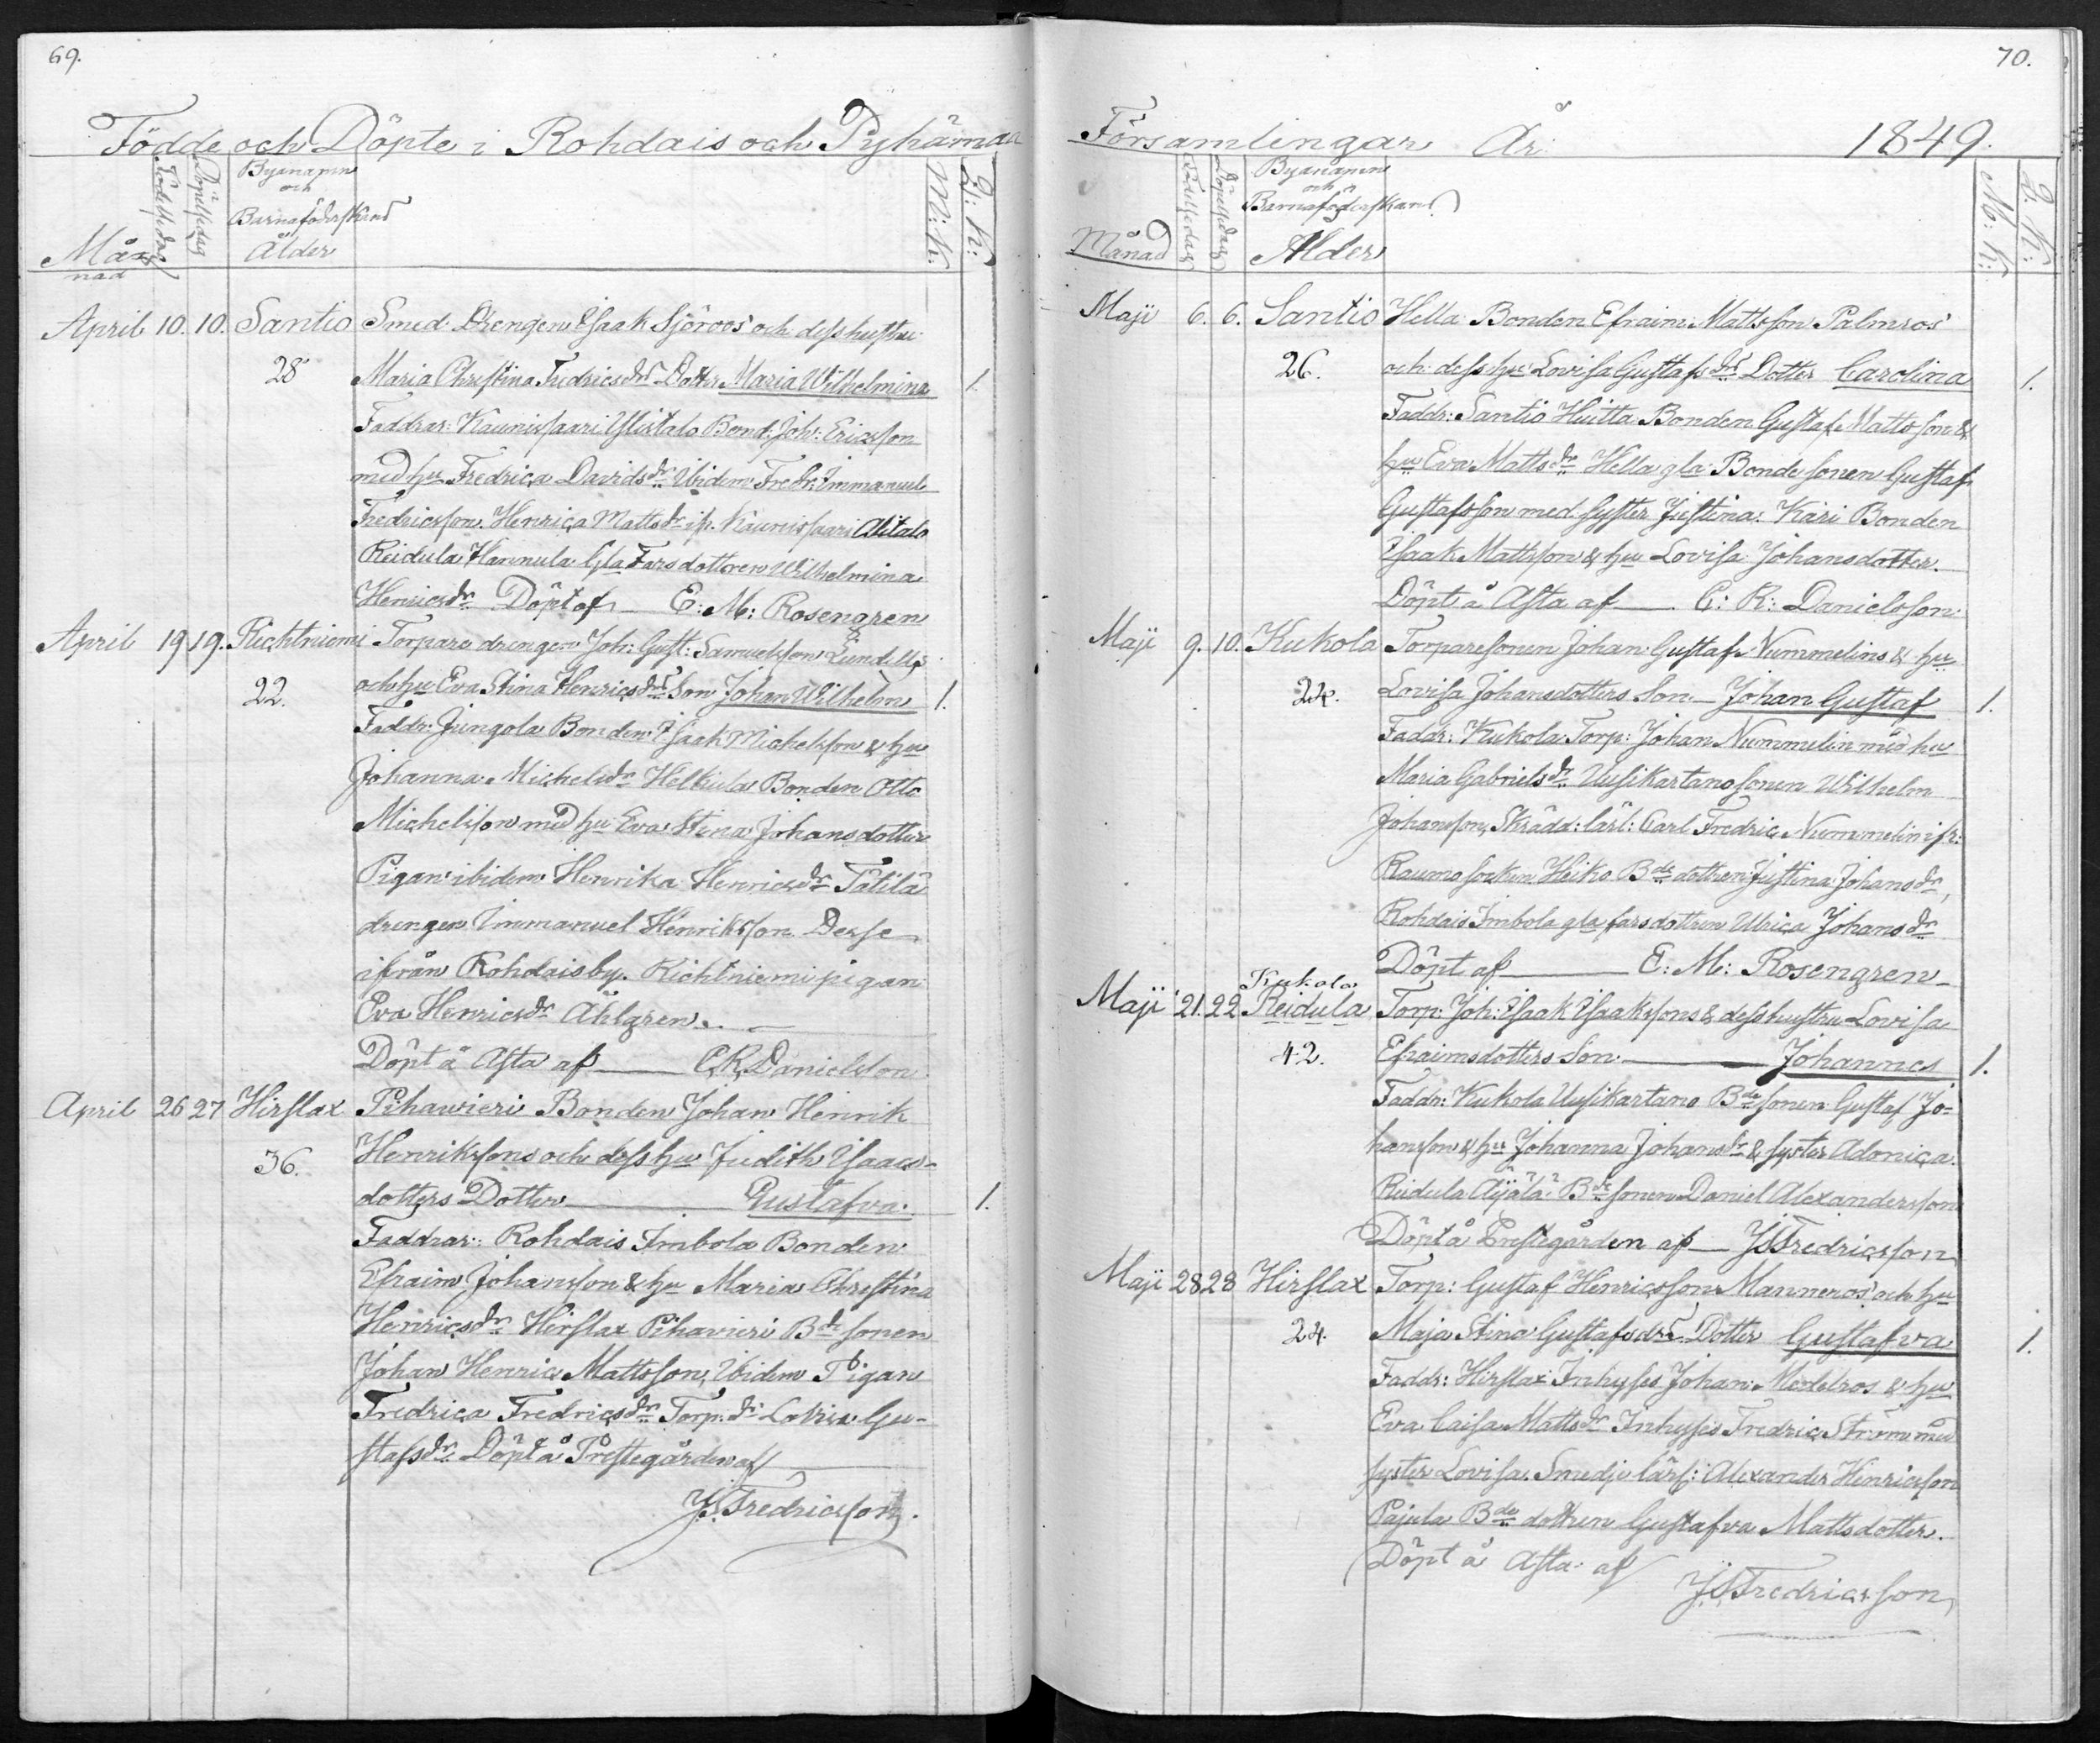 69.
Födde och Döpte i Rohdais och Pyhämaa
Månad
Födelsedag
Döpelsedag
Byanamn
och
Barnaföderskans
Ålder
M: K:
Q: K:
April 10. 10. Santio Smed Drengen Isaak Sjöroos och dess hustru
28 Maria Christina Fredricsdrs Dotter Maria Wilhelmina 1.
Faddrar: Kaunissaari Ylistalo Bond: Joh: Ericsson
med hu Fredrica Davidsdr Ibidem Fredr: Immanuel
Fredricsson. Henrica Mattsdr ifr. Kaunissaari Alitalo
Reidula Hannula Gla Farsdottren Wilhelmina
Henricsdr Döpt af E: M: Rosengren
April 19 19. Richtniemi Torpare drengen Joh: Gust: Samuelsson Lundells
22. och hu Eva Stina Henricsdrs Son Johan Wilhelm 1.
Faddr: Jungola Bonden Isaak Michelsson & hu
Johanna Michelsdr Helkiula Bonden Otto
Michelsson med hu Eva Stina Johansdotter
Pigan ibidem Henrika Henricsdr Tätilä
drengen Immanuel Henriksson Desse
ifrån Rohdaisby. Richtniemi pigan
Eva Henricsdr Åhlgren.
Döpt å Asta af C. R. Danielsson
April 26 27 Hirslax Pihavieri Bonden Johan Henrik
36. Henrikssons och dess hu Judith Isaacs-
dotters Dotter Gustafva. 1.
Faddrar: Rohdais Imbola Bonden
Efraim Johansson & hu Maria Christina
Henricsdr Hirslax Pihavieri Bde sonen
Johan Henric Mattsson, Ibidem Pigan
Fredrica Fredricsdr Torp: dr Lovisa Gu-
stafsdr. Döpt å Prestegården af
J. S. Fredricsson.
70.
Församlingar År: 1849.
Månad
Födelsedag
Döpelsedag
Byanamn
och
Barnaföderskans
Ålder
M: K:
Q: K:
Maji 6. 6. Santio Hella Bonden Efraim Mattsson Palmros
26. och dess hus Lovisa Gustafsdrs Dotter Carolina 1.
Faddr: Santio Huitta Bonden Gustaf Mattsson &
hu Eva Mattsdr Hella gla Bonde sonen Gustaf
Gustafsson med syster Justina. Kari Bonden
Isaak Mattsson & hu Lovisa Johansdotter.
Döpt å Asta af C: R: Danielsson
Maji 9. 10. Kukola Torparesonen Johan Gustaf Nummelins & hu
24. Lovisa Johansdotters Son Johan Gustaf 1.
Faddr: Kukola Torp: Johan Nummelin med hu
Maria Gabrielsdr Uusikartano sonen Wilhelm
Johansson, Skrädd: lärl: Carl Fredric Nummelin ifr:
Raumo socken Heiko Bde dottren Justina Johansdr,
Rohdais Imbola gla farsdottren Ulrica Johansdr
Döpt af E: M: Rosengren
Kukola
Maji 21. 22 Reidula Torp: Joh: Isaak Isaakssons & dess hustru Lovisa
42. Efraimsdotters Son Johannes 1.
Faddr: Kukola Uusikartano Bde sonen Gustaf Jo-
hansson & hu Johanna Johansdr & syster Adonica.
Reidula Äijälä Bde sonen Daniel Alexandersson
Döpt å Prestegården af J. S. Fredricsson
Maji 28 28 Hirslax Torp: Gustaf Henricsson Manneros och hu
24. Maja Stina Gustafsdrs Dotter Gustafva 1.
Faddr: Hirslax Inhyses Johan Medelros & hu
Eva Caisa Mattsdr Inhyses Fredric Ström med
syster Lovisa. Smedje lärl: Alexander Henricsson
Pajula Bde dottren Gustafva Mattsdotter.
Döpt å Asta af
J. S. Fredricsson